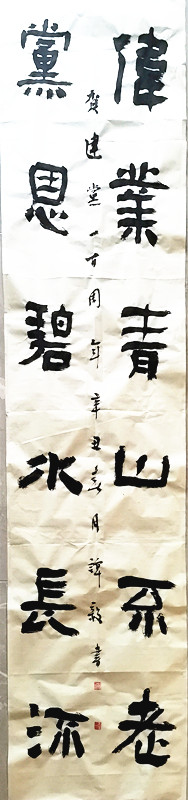 偉業青山不老
黨恩碧水長流
賀建黨一百周年辛丑
月
書